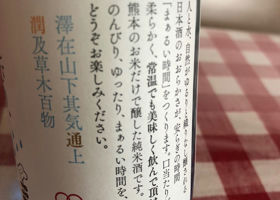 人と水、自然がゆるりと織りなし醸される
日本酒のおおらかさが、安らぎの時間
『まぁるい時間』をつくります。口当たり
柔らかく、常温でも美味しく飲んで頂
熊本のお米だけで醸した純米酒です。
のんびり、ゆったり、まぁるい時間を、
どうぞお楽しみください。
澤在山下其気通上
潤及草木百物